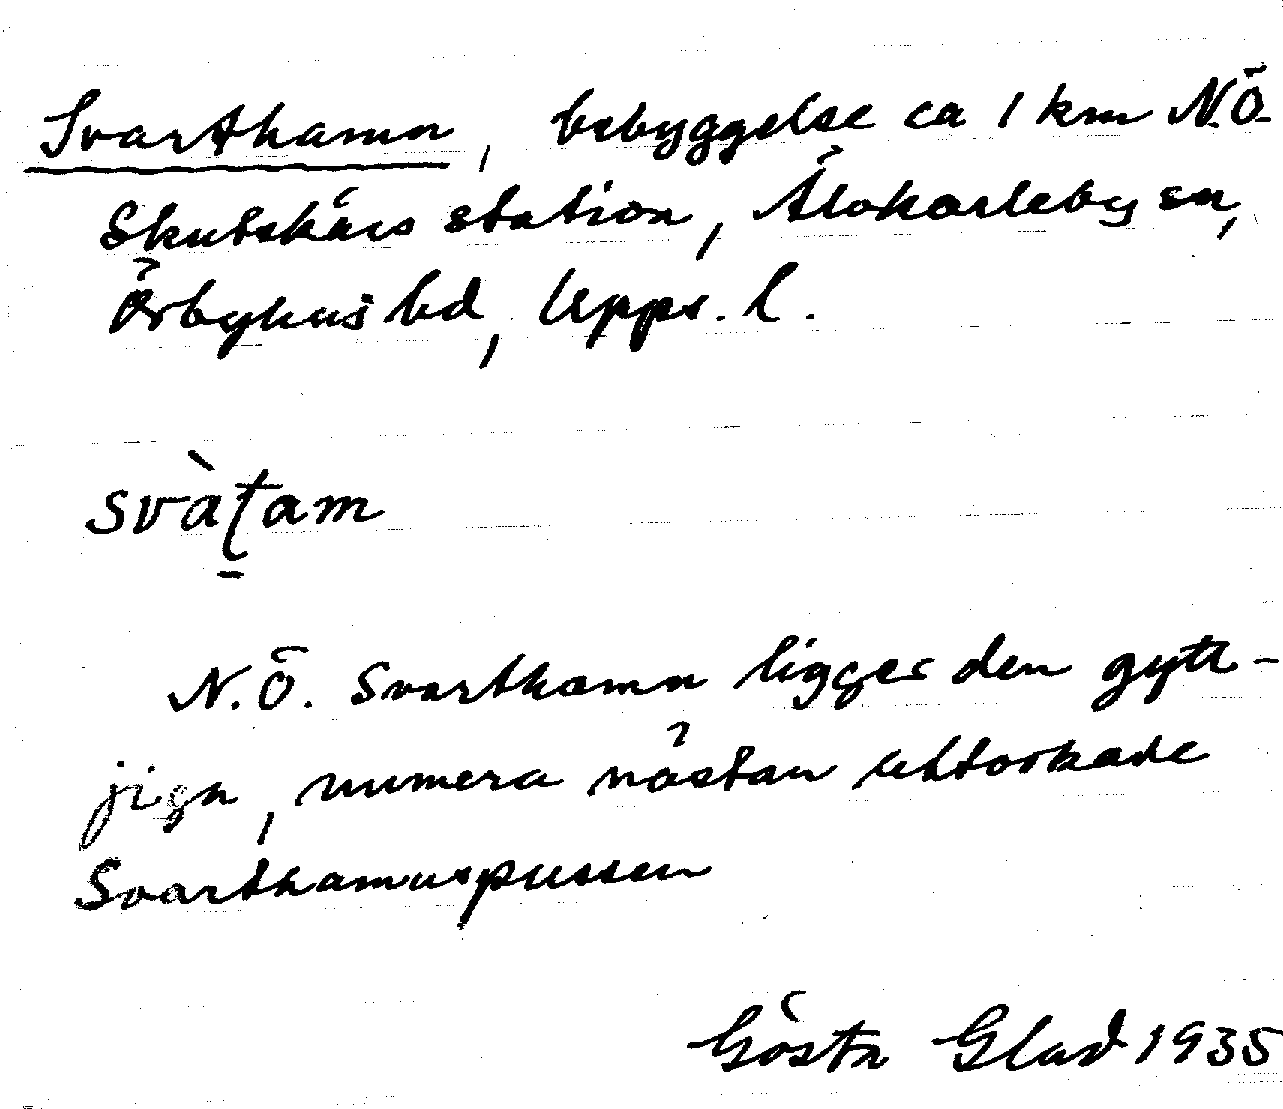 Svarthamn, bebyggelse ca 1 km N.Ö.
Skutskärs station, Älvkarleby sn,
Örbyhus hd, Upps. l.
svàƫam
N.Ö. Svarthamn ligger den gytt-
jiga, numera nästan uttorkade
Svarthamnspussen
Gösta Glad 1935